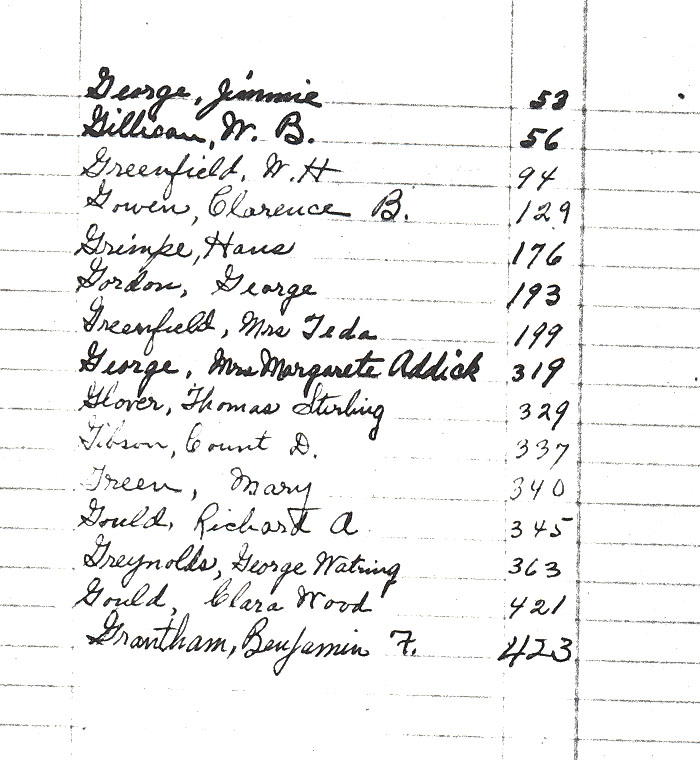 George, Jimmie 53
Gillican, W. B. 56
Greenfield, W. H 94
Gowen, Clarence B. 129
Grimpe, Hans 176
Gordon, George 193
Greenfield, Mrs Teda 199
George, Mrs Margarete Addick 319
Glover, Thomas Stirling 329
Gibson, Count D. 337
Green, Mary 340
Gould, Richard A 345
Greynolds, George Watring 363
Gould, Clara Wood 421
Grantham, Benjamin F. 423